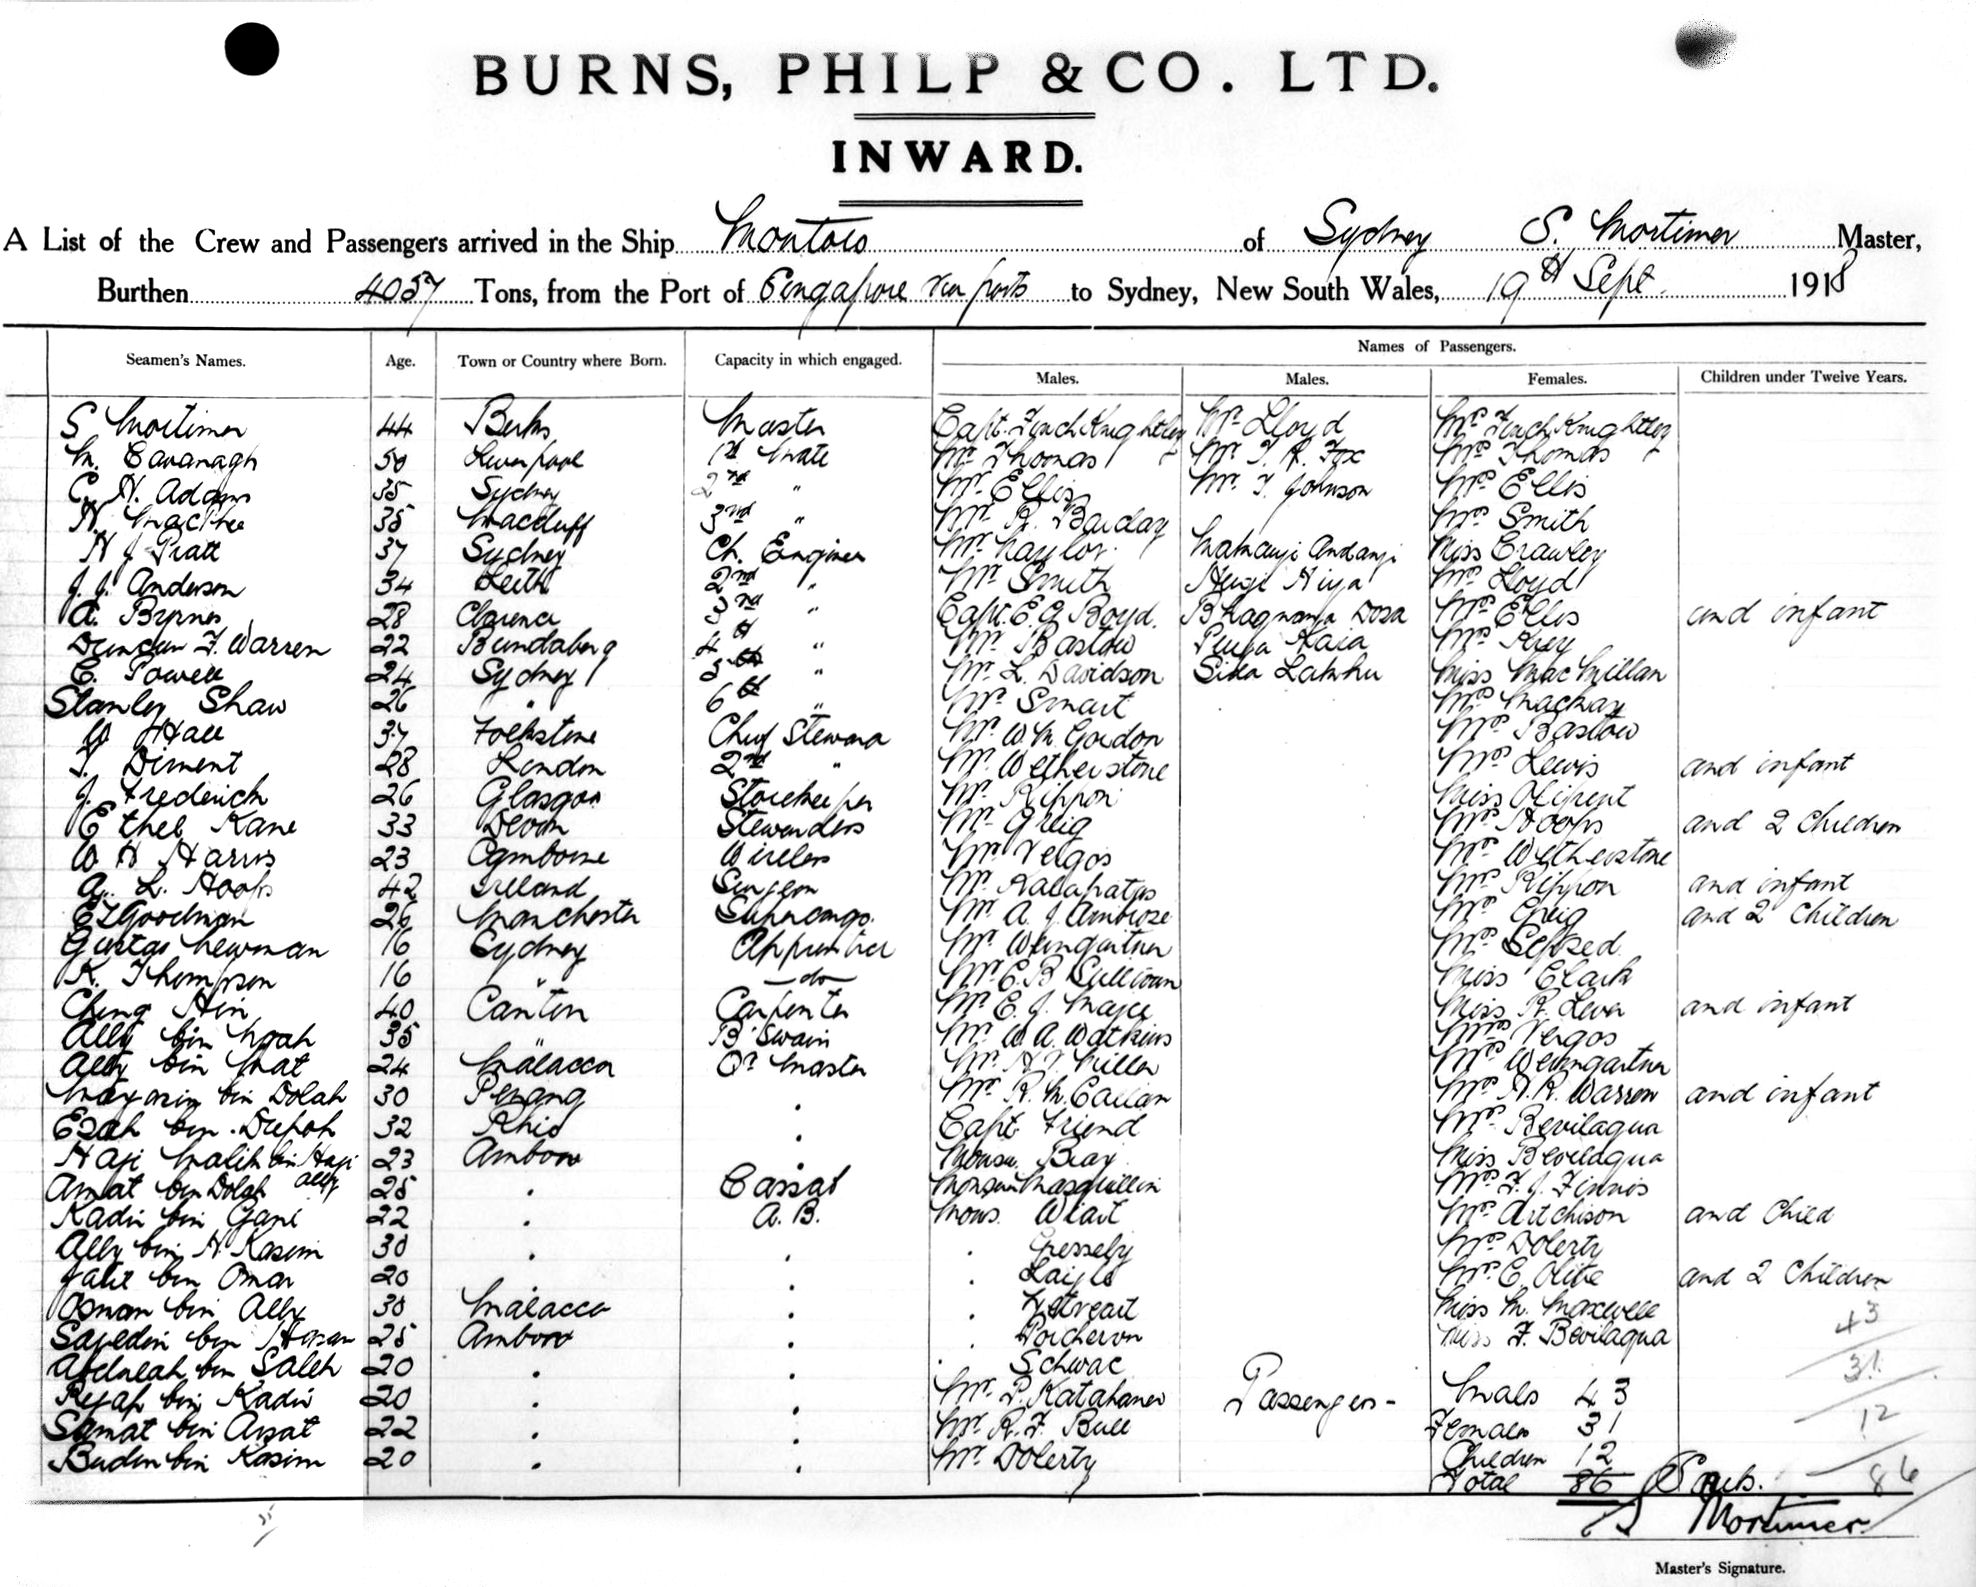 BURNS, PHILP & CO. LTD.
INWARD.
A List of the Crew and Passengers arrived in the Ship Montoro of Sydney S. Mortimer Master,
Burthen 4057 Tons, from the Port of Singapore via ports to Sydney, New South Wales, 19th Sept. 1918
Names of Passengers.
Seamen's Names. Age. Town or Country where Born. Capacity in which engaged. Males. Males. Females. Children under Twelve Years.
S Mortimer 44 Berks Master Capt. Finch Knightley Mr. Lloyd Mrs Finch Knightley
M. Cavanagh 50 Liverpool 1st Mate Mr Thomas Mr. T. R. Fox Mrs Thomas
C. H. Adams 35 Sydney 2nd " Mr. Ellis Mr. T. Johnson Mrs Ellis
N. MacPhee 35 Macduff 3rd " Mr. R. Barclay Mrs Smith
H J Pratt 37 Sydney Ch. Engineer Mr. Naylor. Andanji Miss Crawley
J. J. Anderson 34 Leith 2nd " Mr. Smith Hirji Hiya Mrs Lloyd
A. Byrnes 28 Clarence 3rd " Capt. E. O. Boyd. Dosa Mrs Ellis and infant
Duncan F. Warren 22 Bundaberg 4th " Mr Bastow Kaia Mrs Key
C. Powell 24 Sydney 5th " Mr. L. Davidson Sika Lakhu Miss MacMillan
Stanley Shaw 26 " 6th " Mr. Smart Mrs Mackay
W Hall 37 Folkstone Chief Steward Mr. W. M. Gordon Mrs Bastow
T. Diment 28 London 2nd " Mr. Wetherstone Mrs Lewis and infant
J. Frederick 26 Glasgow Storekeeper Mr. Rippon Miss Olipent
Ethel Kane 33 Devon Stewardess Mr. Greig Mrs Hoops and 2 Children
W H Harris 23 Camborne Wireless Mr Vergos Mrs Wetherstone
A. L. Hoops 42 Ireland Surgeon Mr. Kalapatas Mrs Rippon and infant
E J Goodman 26 Manchester Supercargo. Mr. A. J. Ambrose Mrs Greig and 2 Children
Newman 16 Sydney Apprentice Mr. Weingartner Mrs
K. Thompson 16 " -do- Mr. C. B. Sullivan Miss Clark
Ching Hin 40 Canton Carpenter Mr. E. J. Mayce Miss R. Lever and infant
Ally bin Noah 35 " B'Swain Mr. W. A. Watkins Mrs Vergos
Ally bin Mat 24 Malacca Qr Master Mr. H. T. Miller Mrs Weingartner
bin Dolah 30 Penang . Mr. R. McCallan Mrs H. R. Warren and infant
Esah bin Depoh 32 Rhio . Capt. Friend Mrs. Bevilaqua
Haji Malik bin Haji Ally 23 Amboin . Monsr. Miss Bevilaqua
Amat bin Dolah 25 . Cassab Monsr Mrs F. J. Finnis
Kadir bin Gani 22 . A. B. Mons. Wiart Mrs Aitchison and Child
Ally bin H. Kasim 30 . . . Mrs Dolerty
Jalil bin Omar 20 . . . Mrs. C. Olive and 2 Children
Osman bin Ally 30 Malacca . . Miss M. Maxwell
Sapedin bin Hosan 25 Amboin . . Porcheron Miss F. Bevilaqua
Abdullah bin Saleh 20 . . . Schwac
Reyap bin Kadir 20 . . Mr. P. Katahanas Passengers - Males 43
Samat bin Arsat 22 . . Mr. R. F. Bull Females 31
Budin bin Kasim 20 . . Mr. Dolerty Children 12
Total 86 Souls.
43
31
12
86
S Mortimer
Master's Signature.